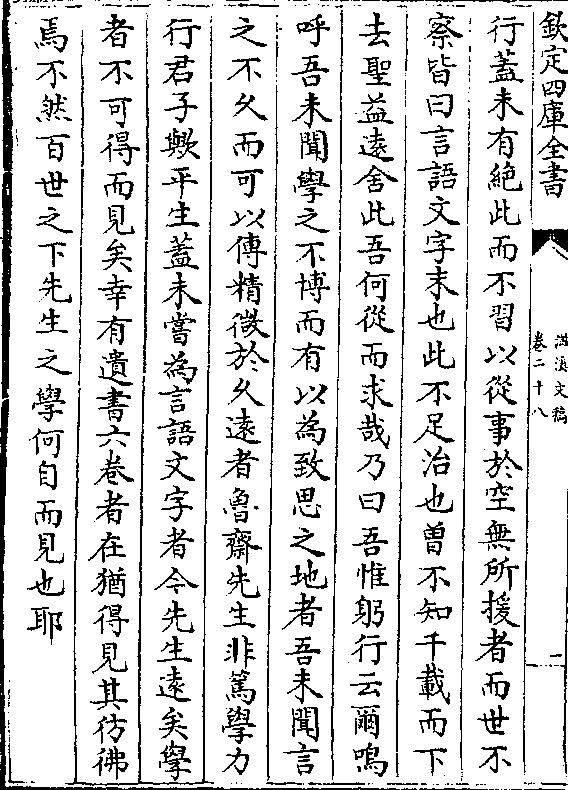 欽定四庫全書
滋溪文稿
卷二十八
一
行蓋未有絶此而不習以從事於空無所援者而世不
察皆曰言語文字末也此不足治也曽不知千載而下
去聖益逺舍此吾何從而求哉乃曰吾惟躬行云爾嗚
呼吾未聞學之不博而有以為致思之地者吾未聞言
之不久而可以傳精微於久逺者魯齋先生非篤學力
行君子歟平生蓋未嘗為言語文字者今先生逺矣學
者不可得而見矣幸有遺書六卷者在猶得見其彷彿
焉不然百世之下先生之學何自而見也耶